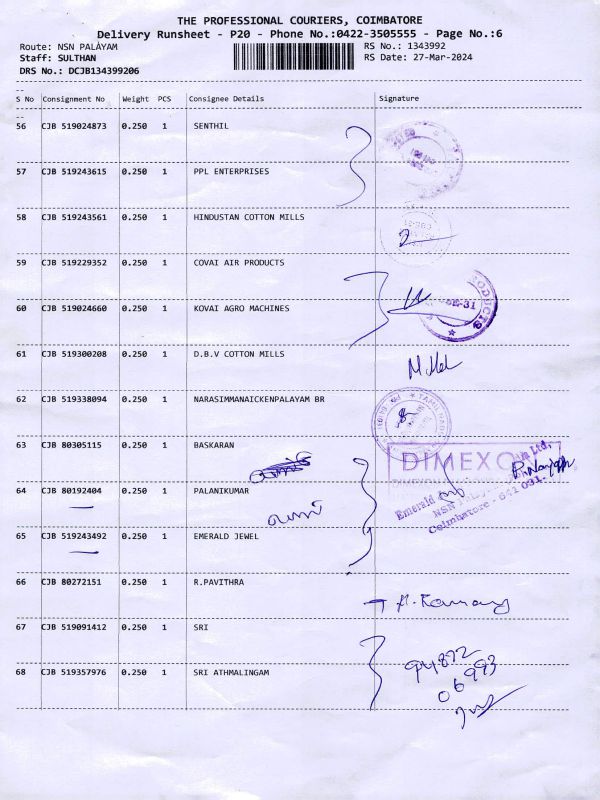 THE PROFESSIONAL COURIERS, COIMBATORE
Delivery Runsheet - P20 - Phone No.:0422-3505555 - Page No.:6
Route: NSN PALAYAM RS No.: 1343992
Staff: SULTHAN RS Date: 27-Mar-2024
DRS No.: DCJB134399206
S No Consignment No Weight PCS Consignee Details Signature
56 CJB 519024873 0.250 1 SENTHIL
57 CJB 519243615 0.250 1 PPL ENTERPRISES
58 CJB 519243561 0.250 1 HINDUSTAN COTTON MILLS
59 CJB 519229352 0.250 1 COVAI AIR PRODUCTS
60 CJB 519024660 0.250 1 KOVAI AGRO MACHINES
61 CJB 519300208 0.250 1 D.B.V COTTON MILLS
62 CJB 519338094 0.250 1 NARASIMMANAICKENPALAYAM BR
63 CJB 80305115 0.250 1 BASKARAN
DIMEXO
64 CJB 80192404 0.250 1 PALANIKUMAR
Emerald
NSN
Coimbatore - 641 031.
65 CJB 519243492 0.250 1 EMERALD JEWEL
66 CJB 80272151 0.250 1 R.PAVITHRA
67 CJB 519091412 0.250 1 SRI
94872
06993
68 CJB 519357976 0.250 1 SRI ATHMALINGAM